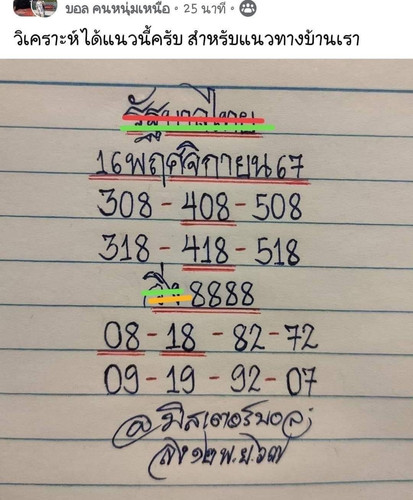 บอล คนหนุ่มเหนือ • 25 นาที •
วิเคราะห์ได้แนวนี้ครับ สำหรับแนวทางบ้านเรา
รัฐบาลไทย
16 พฤศจิกายน 67
308 - 408 - 508
318 - 418 - 518
วิ่ง 8888
08 - 18 - 82 - 72
09 - 19 - 92 - 07
@มิสเตอร์บอล
ลง ๑๒ พ.ย. ๖๗